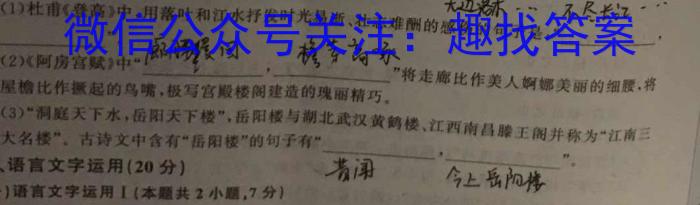 (1)杜甫《登高》中,用落叶和江水抒发时光易逝、壮志难酬的感
微信公众号关注:趣找答案
(2)《阿房宫赋》中“ , ”将走廊比作美人婀娜美丽的细腰,将
屋檐比作撅起的鸟嘴,极写宫殿楼阁建造的瑰丽精巧。
(3)“洞庭天下水,岳阳天下楼”,岳阳楼与湖北武汉黄鹤楼、江西南昌滕王阁并称为“江南三
大名楼”。古诗文中含有“岳阳楼”的句子有“ , ”。
昔闻 今上岳阳楼
语言文字运用(20分)
)语言文字运用Ⅰ(本题共2小题,7分)